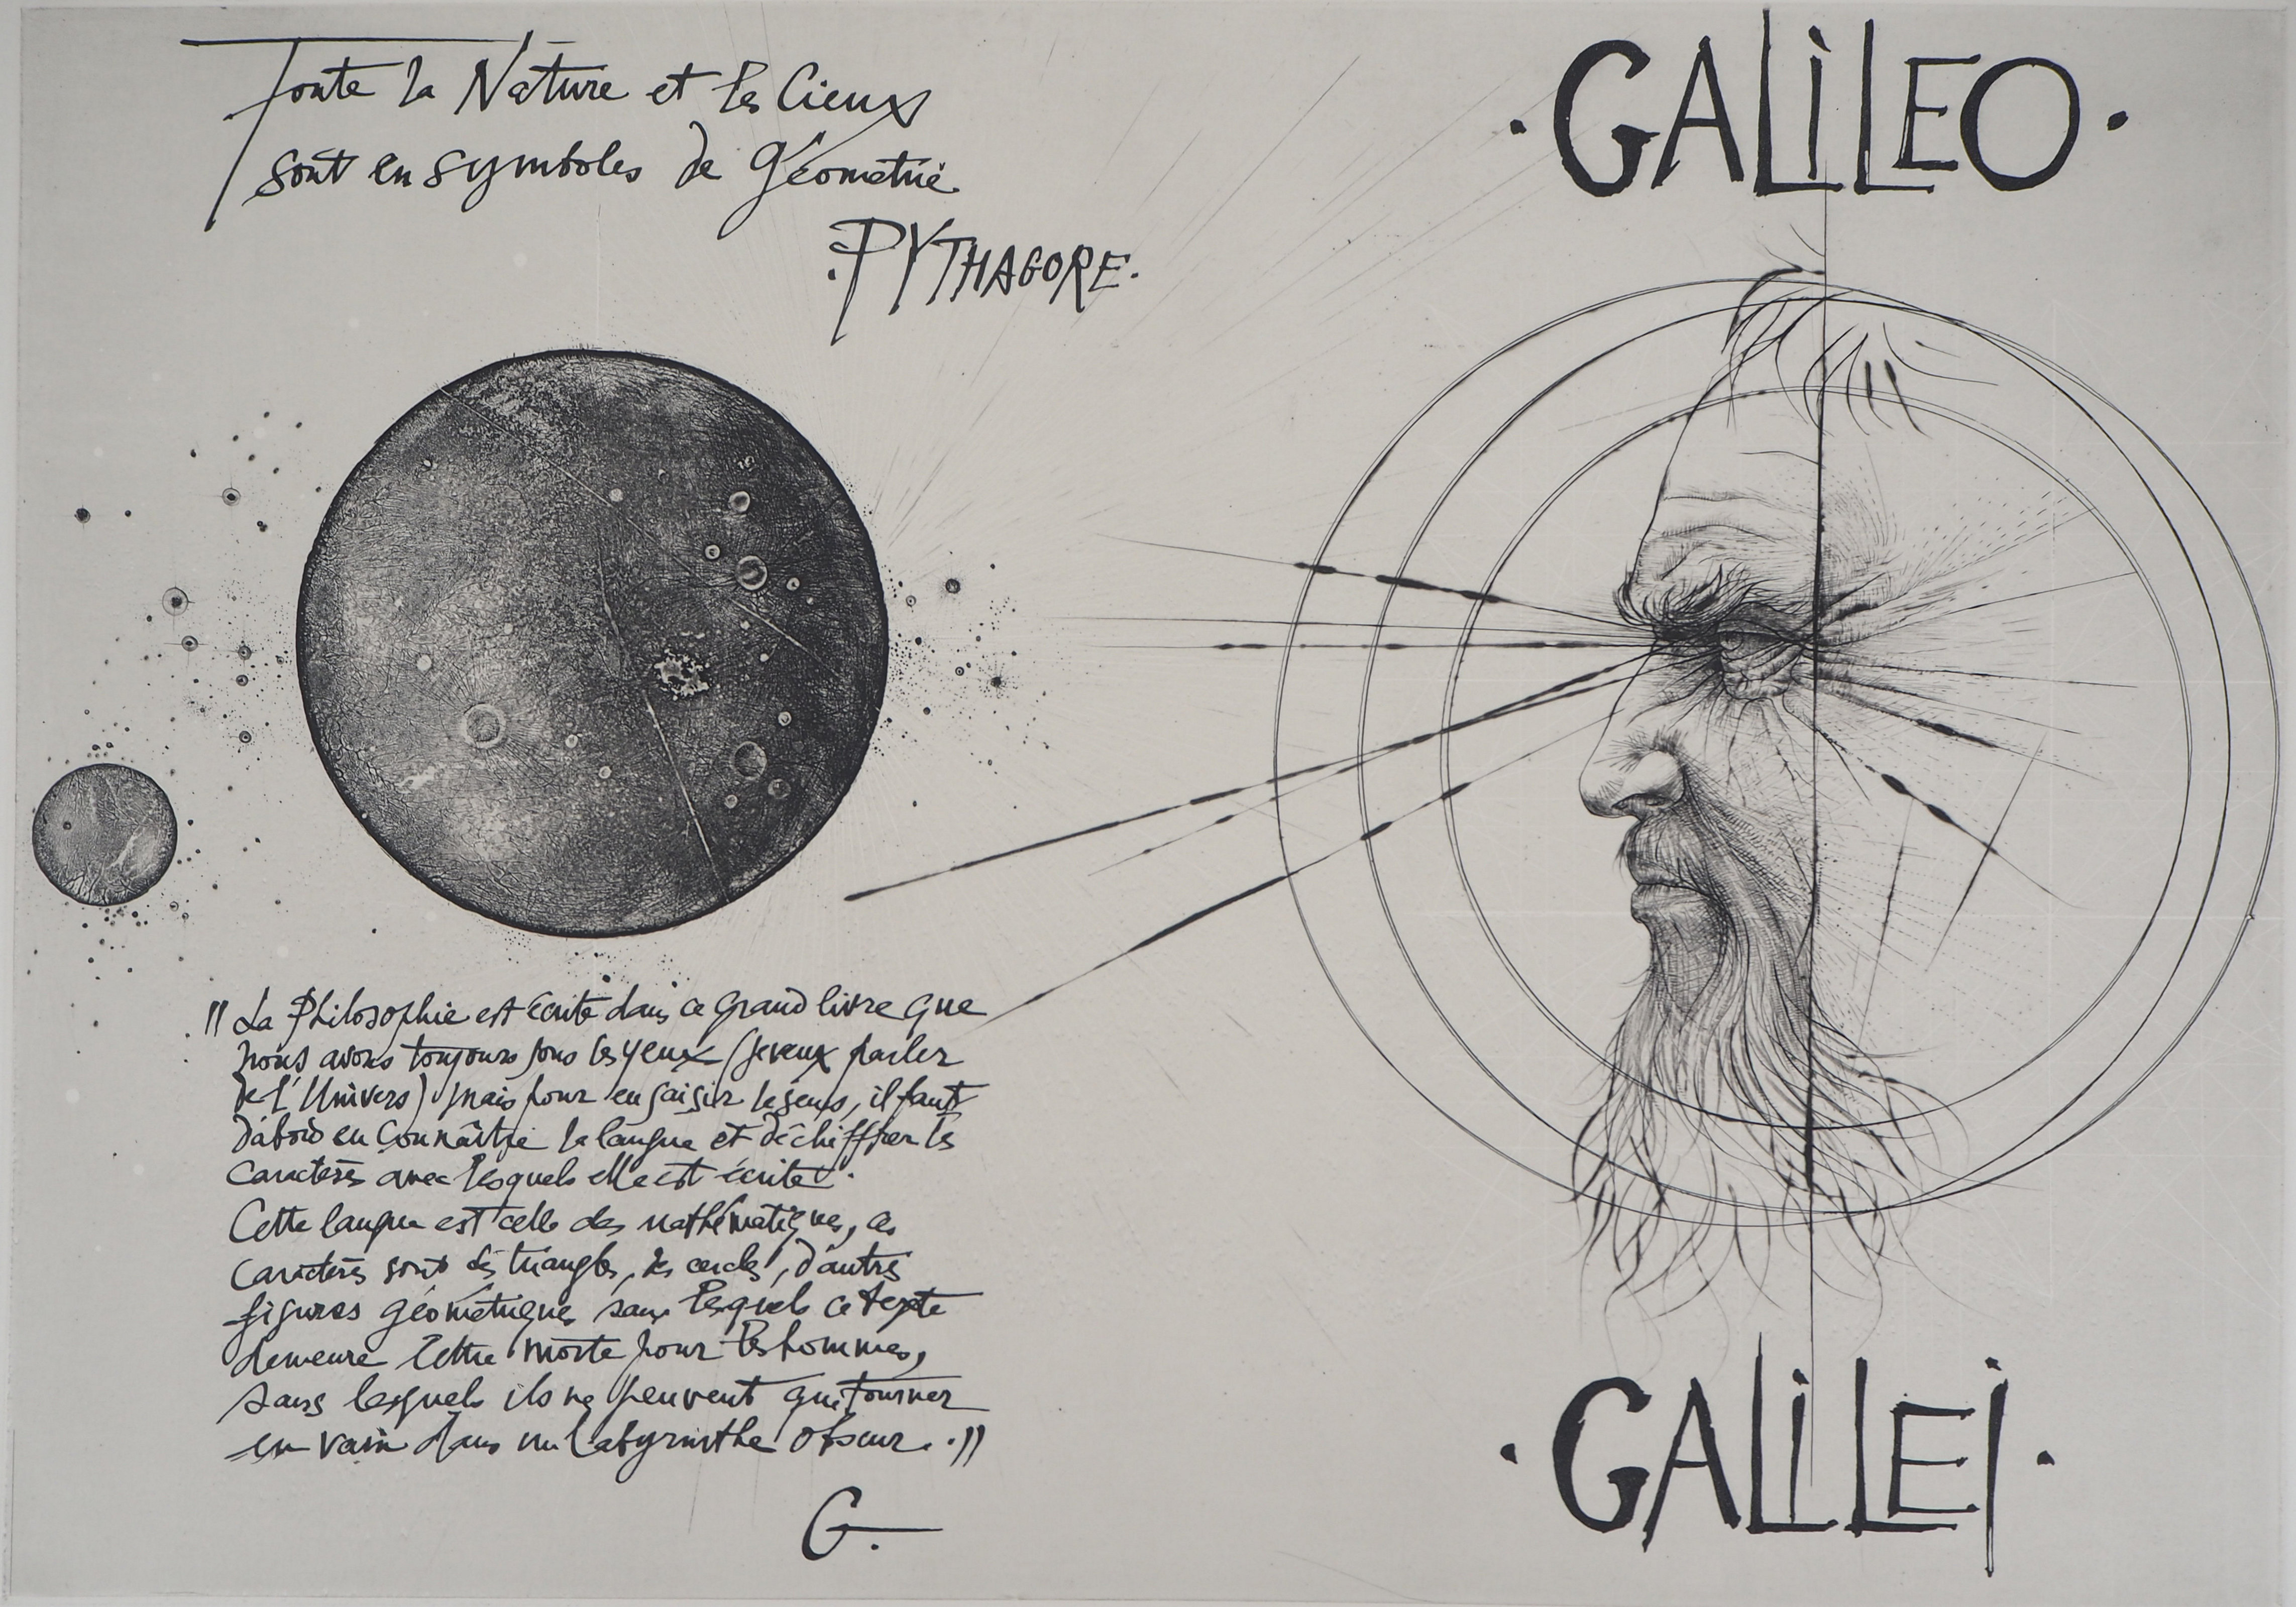 Toute la Nature et les Cieux
sont en symboles de Géométrie
·PYTHAGORE·
·GALiLEO·
"La Philosophie est écrite dans ce grand livre que
nous avons toujours sous les yeux (je veux parler
de l'Univers) mais pour en saisir le sens, il faut
d'abord en connaître la langue et déchiffrer les
caractères avec lesquels elle est écrite.
Cette langue est celle des mathématiques, ces
caractères sont des triangles, des cercles, d'autres
figures géométriques sans lesquels ce texte
demeure lettre morte pour les hommes,
sans lesquels ils ne peuvent que tourner
en vain dans un labyrinthe obscur."
G.
·GALiLEi·